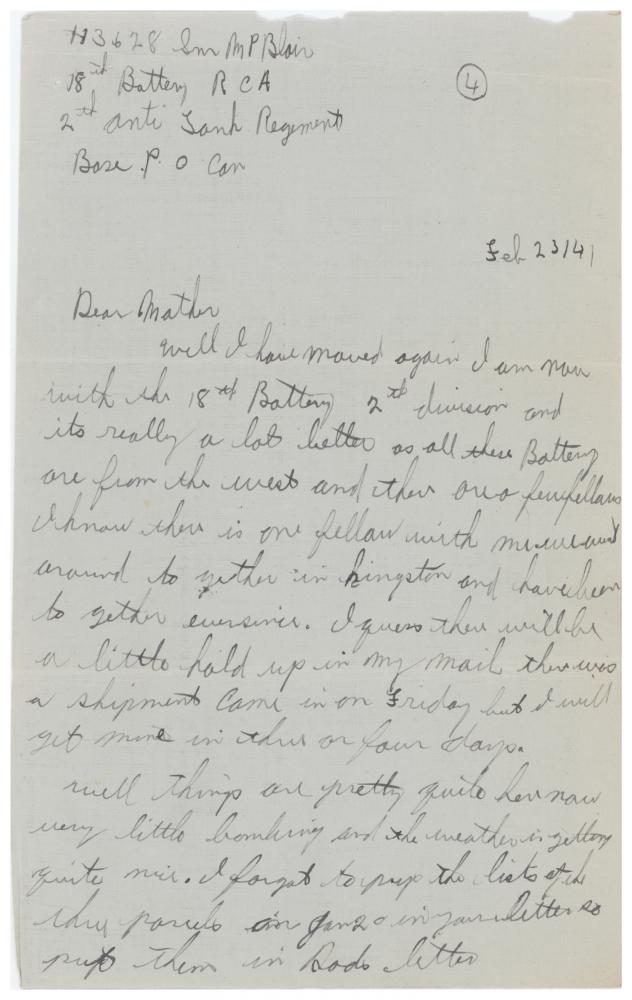 H3628 Gnr M P Blair
18th Battery R C A
2th anti Tank Regement
Base P. O Can
4
Feb 23/41
Dear Mother
well I have moved again I am now
with the 18th Battery 2th division and
its really a lot better as all these Battery
are from the west and ther are a few fellows
I know ther is one fellow with me we went
around to gether in kingston and have been
to gether ever since. I guess ther will be
a little hold up in my mail ther was
a shipment came in on Friday but I will
get mine in three or four days.
well things are pretty quite her now
very little bombing and the weather is getting
quite nice. I forgot to put the lists of the
three parcels on Jan 20 in your letter so
put them in Dads letter